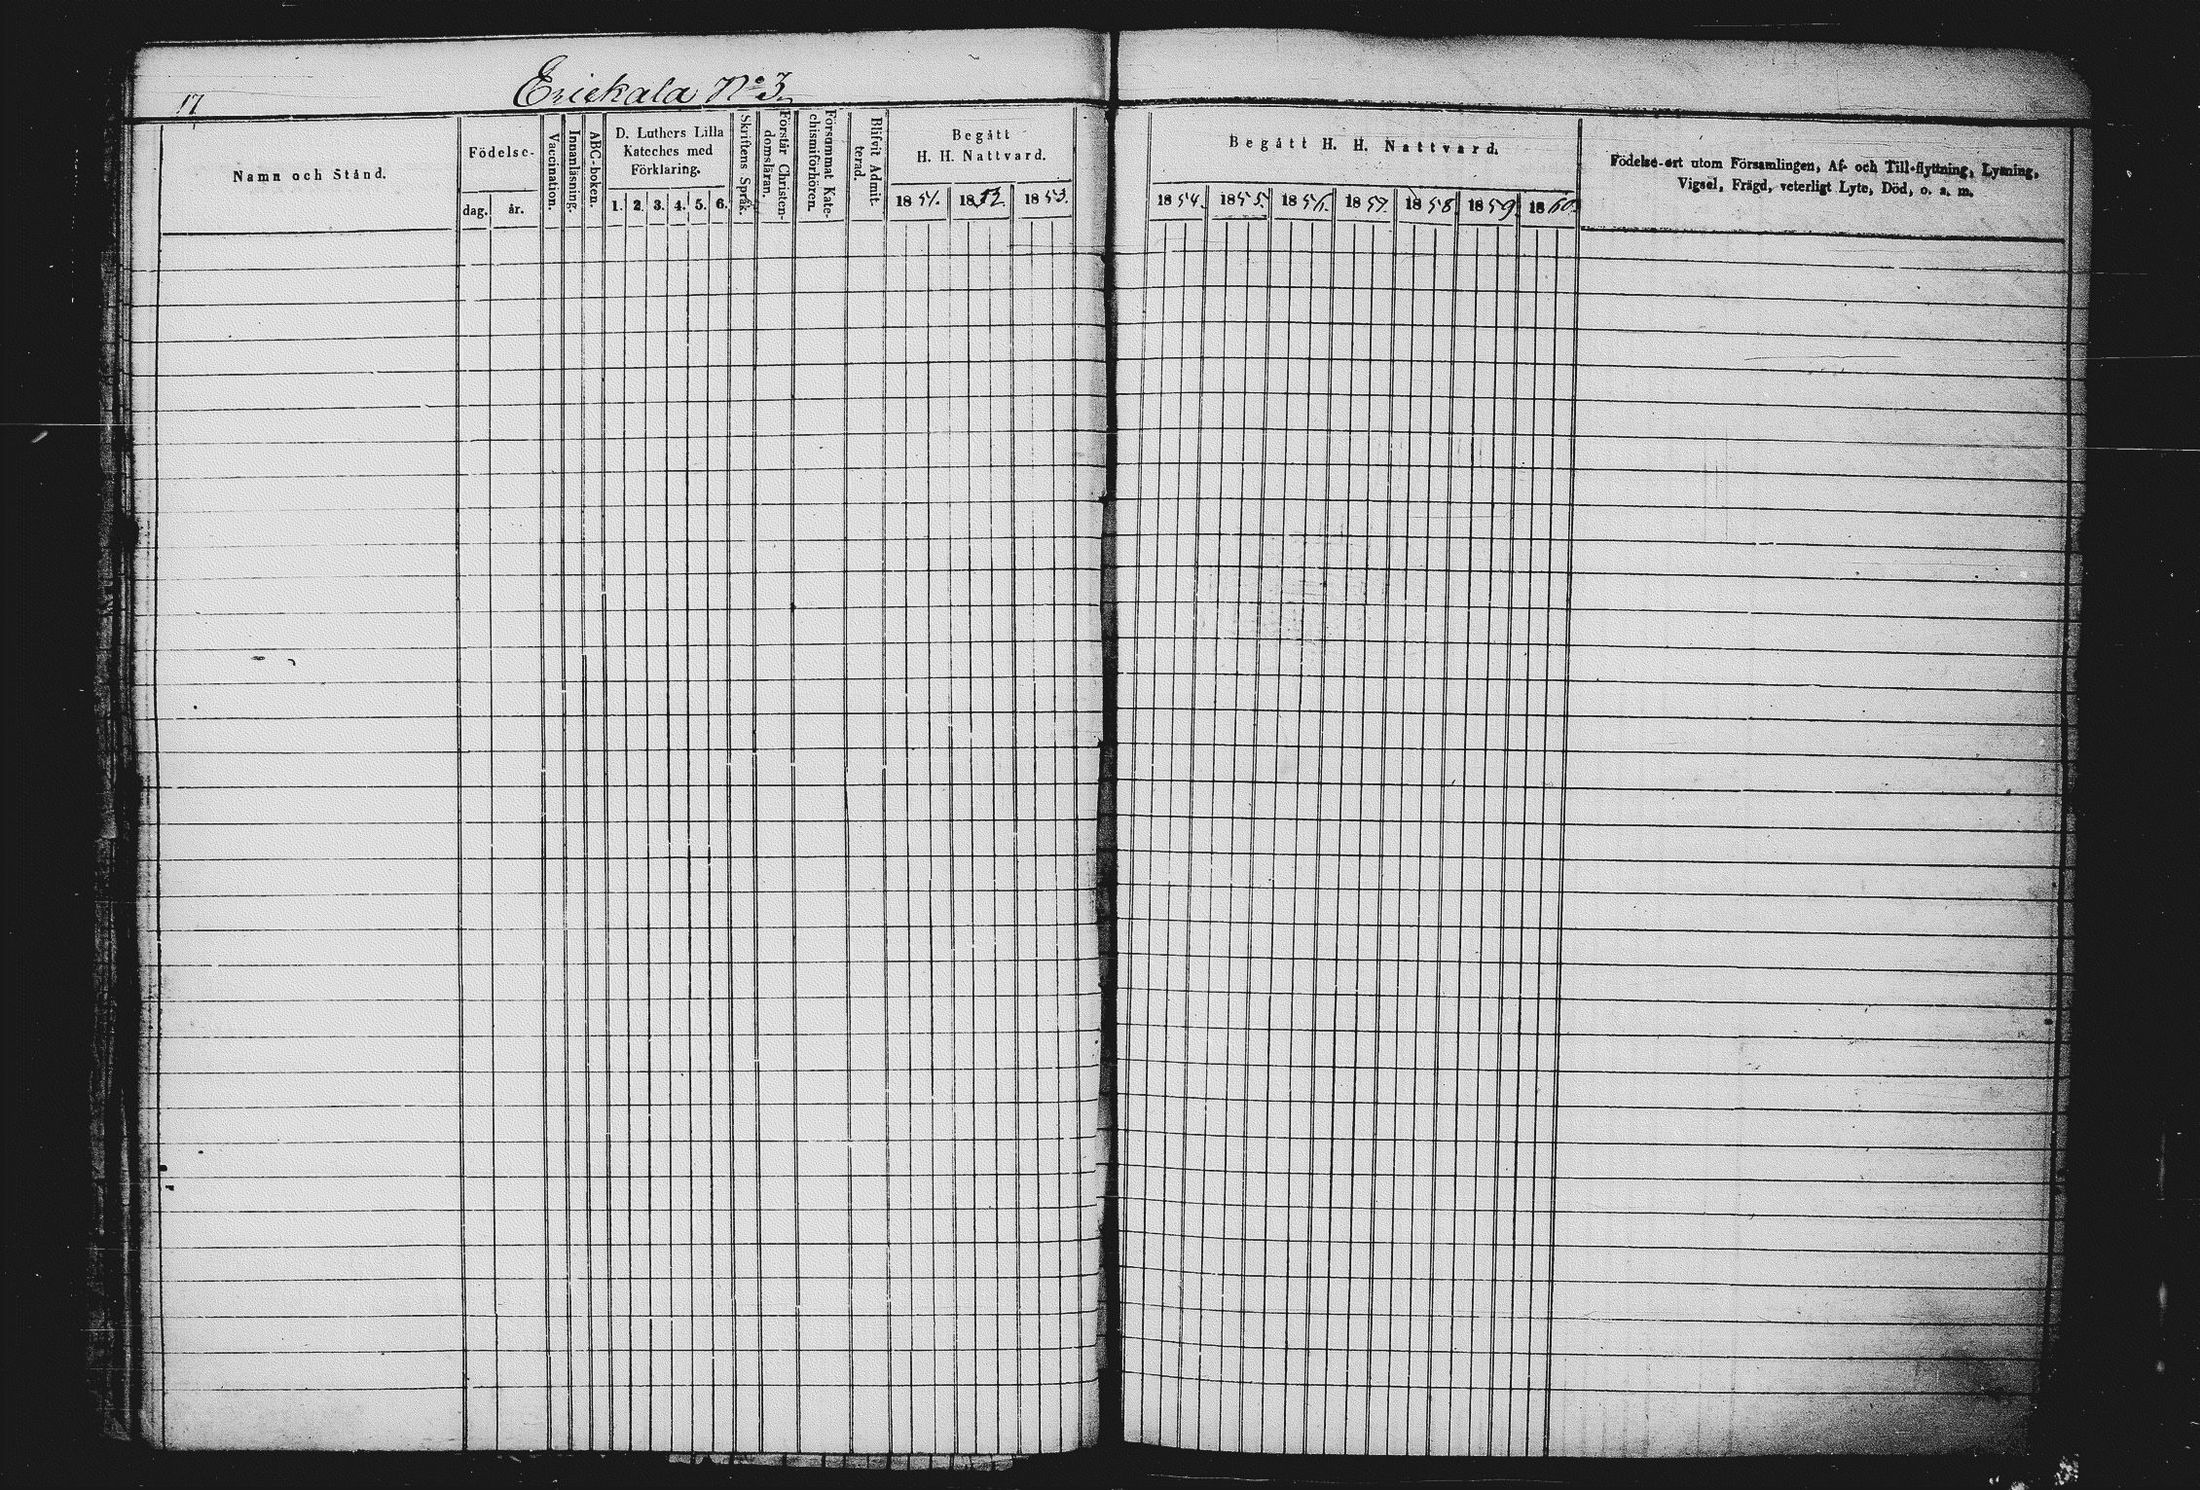 17
Erickala No 3.
Namn och Stånd.
Födelse-
dag. år.
Vaccination.
Innanläsning.
ABC-boken.
D. Luthers Lilla
Kateches med
Förklaring.
1. 2. 3. 4. 5. 6.
Skriftens Språk.
Förstår Christen-
domsläran.
Försummat Kate-
chismiförhören.
Blifvit Admit-
terad.
Begått
H. H. Nattvard.
1851. 1852. 1853.
Begått H. H. Nattvard.
1854. 1855. 1856. 1857. 1858. 1859. 1860.
Födelse-ort utom Församlingen, Af- och Till-flyttning, Lysning,
Vigsel, Frägd, veterligt Lyte, Död, o. s. m.